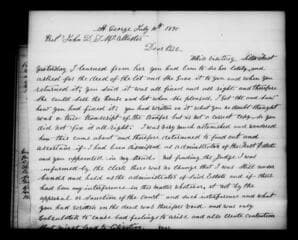 St George July 10th 1890
Pres John D. T. McAllister
Dear Bro.
While visiting Sister
Yesterday I learned from her you had been to see her lately, and
asked for the deed of the lot and she gave it to you and when you
returned it, you said it was all fixed and all right, and therefore
she could sell the house and lot when she pleased. I got the deed and saw
how you had fixed it. You had written in it what you no doubt thought
was a true transcript of the but is not a correct copy. So you
did not "fix it all right." I was very much astonished and wondered
how this came about and therefore returned to find out and
ascertain if I had been dismissed as administrator of the Estate
and you appointed in my stead. Not finding the Judge, I was
informed by the clerk there was no change that I was still under
bonds and held as the administrator of said Estate and if there
had been any interference in this matter whatever, it not by the
approval or sanction of the court and such interference and what
you had written in the deed was the work and was only
calculated to cause bad feelings to arise and also create contention
that might lead to litigation.